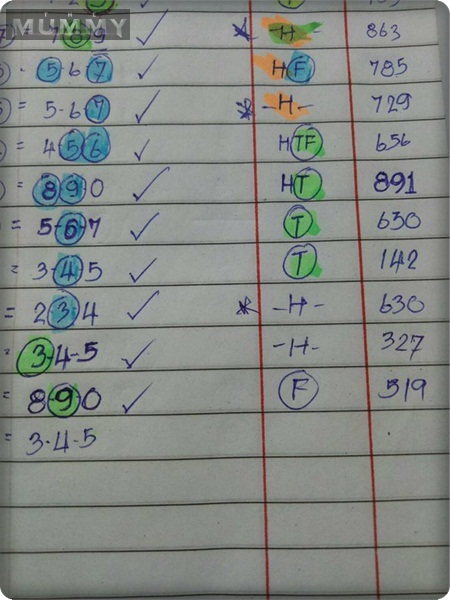 MUMMY
7 8 9 ✓ * -H- 863
5-6-7 ✓ HF 785
= 5-6-7 ✓ * -H- 729
= 4 5 6 ✓ HTF 656
= 8 9 0 ✓ HT 891
= 5-6-7 ✓ T 630
= 3-4-5 ✓ T 142
= 2 3 4 ✓ * -H- 630
3-4-5 ✓ -H- 327
= 8-9-0 ✓ F 519
= 3-4-5